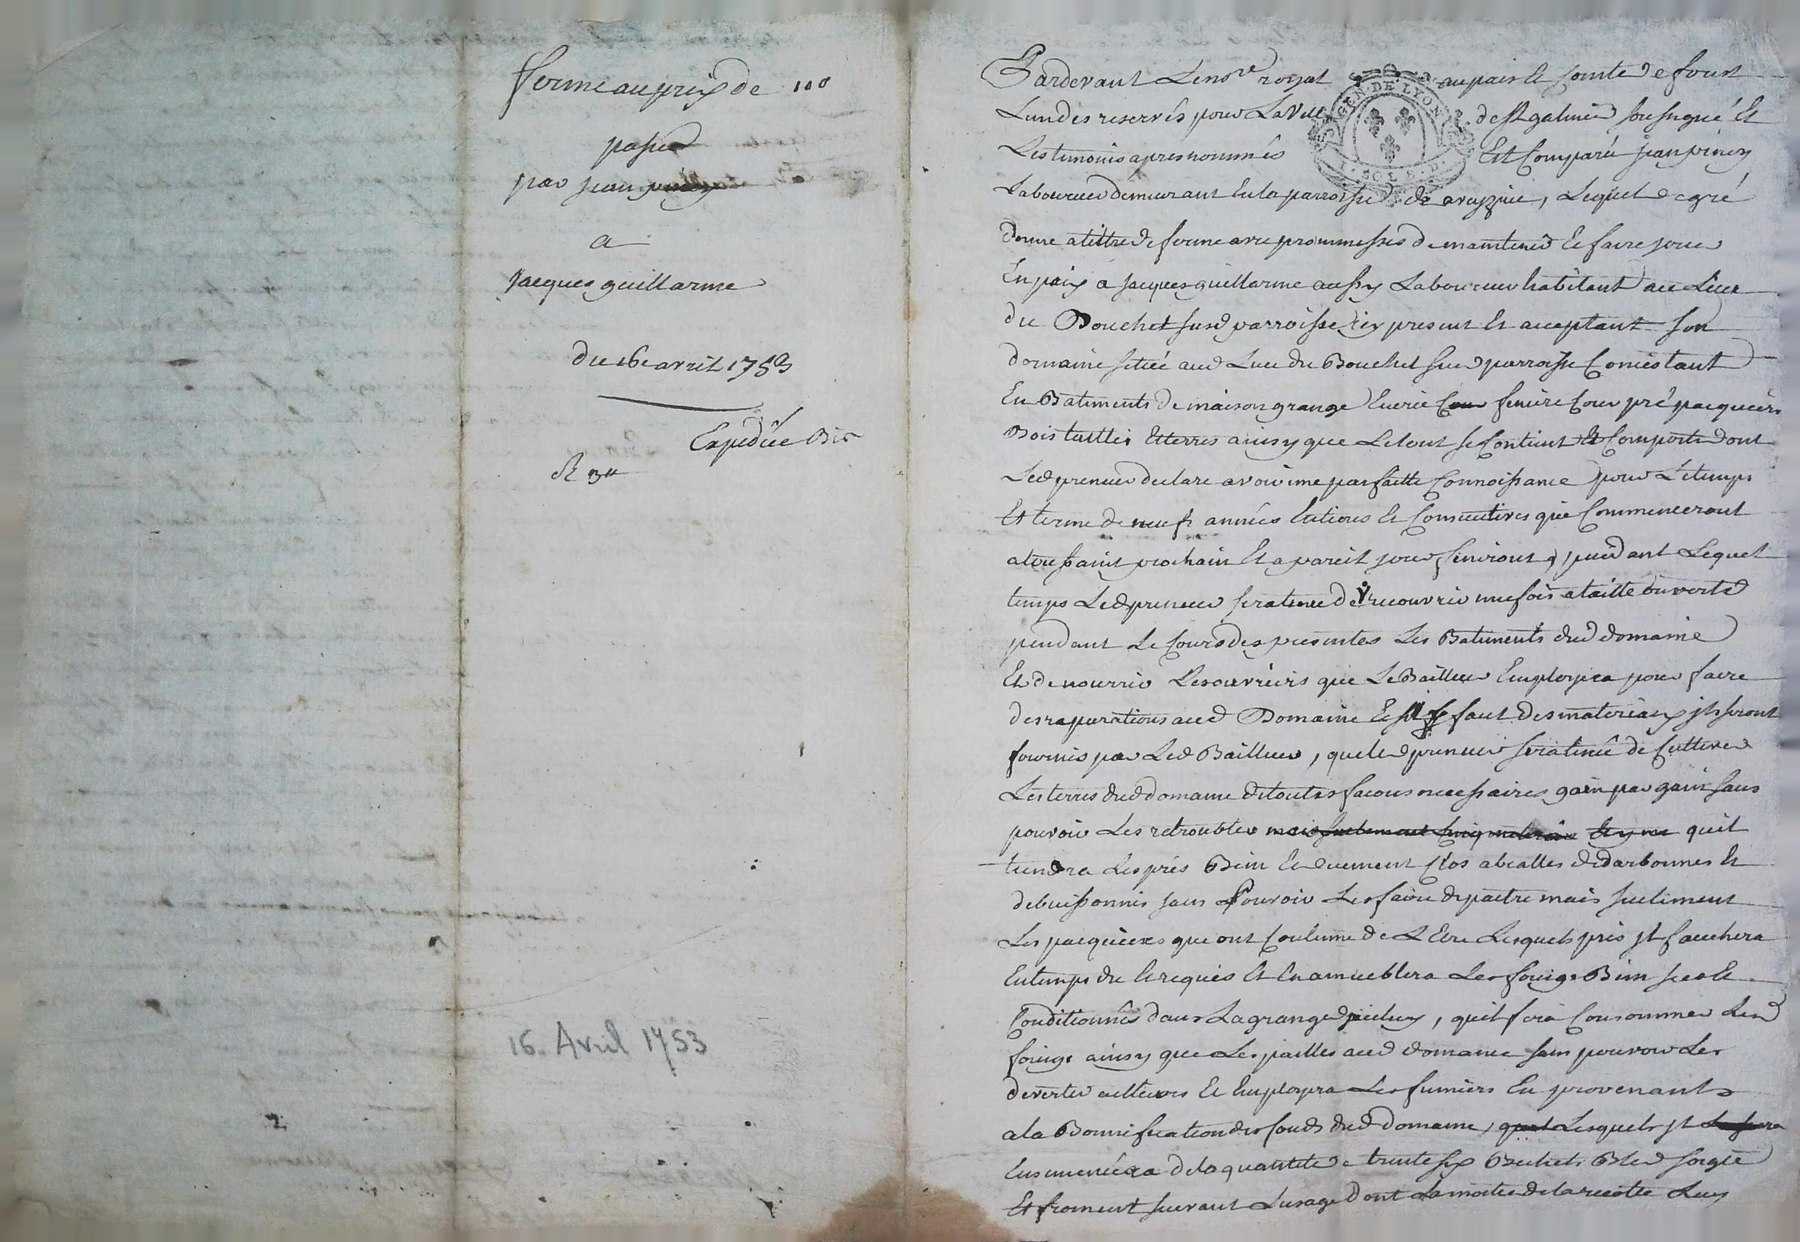 ferme au prix de 110
passée
par jean pinay
a
Jacques guillarme
du 16e avril 1753
Expediée Bis
R 3ll
16. Avril 1753
Pardevant Le nore royal au pais et Comté de forest
L'un des reservés pour La Ville de St galmier soussigné Et
Les temoins apres nommés Est Comparu jean pinay
Laboureur demeurant En la parroisse de aveyzieu, Lequel de gré
donne a tittre de ferme avec prommesses de maintenir Et faire jouir
En paix a jacques guillarme aussy Laboureur habitant au Lieu
du Bouchet susd parroisse icy present Et acceptant son
domaine scitué aud Lieu du Bouchet susd parroisse Consistant
En Batiments de maison grange Ecurie feniere Cour pré pacquiers
Bois taillis Et terres ainsy que Le tout se Contient Et Comporte dont
Led preneur declare avoir une parfaitte Connoissance pour Le temps
Et terme de neuf années Entieres Et Consecutives qui Commenceront
a toussaint prochain Et a pareil jour finiront, pendant Lequel
temps Led preneur sera tenu de recouvrir une fois a taille ouverte
pendant Le Cours des presentes Les Batiments dud domaine
Et de nourrir Les ouvriers que Le Bailleur Employra pour faire
des raparations aud Domaine Et s'il faut des materiaux jls seront
fournis par Led Bailleur, que led preneur sera tenu de Cultiver
Les terres dud domaine de touttes facons necessaires gain par gain sans
pouvoir Les retroubler qu'il
tiendra Les prés Bien Et duement Clos abialles de darbonnes Et
debuissonnés sans Pouvoir Les faire depaitre mais seulement
Les pacquiers que ont Coutume de L'Etre Lesquels prés jl fauchera
En temps du Et requis Et En ameublera Les foings Bien secs Et
Conditionnés dans La grange d'iceluy, qu'il fera Consommer Lesd
foings ainsy que Les pailles aud domaine sans pouvoir Les
divertir ailleurs Et Employra Les fumiers En provenants
a la Bonnification des fonds dud domaine, Lesquels jl
Ensemencera de la quantité de trente six Bichets Bled soigle
Et froment suivant L'usage dont La moitié de la recolte Luy